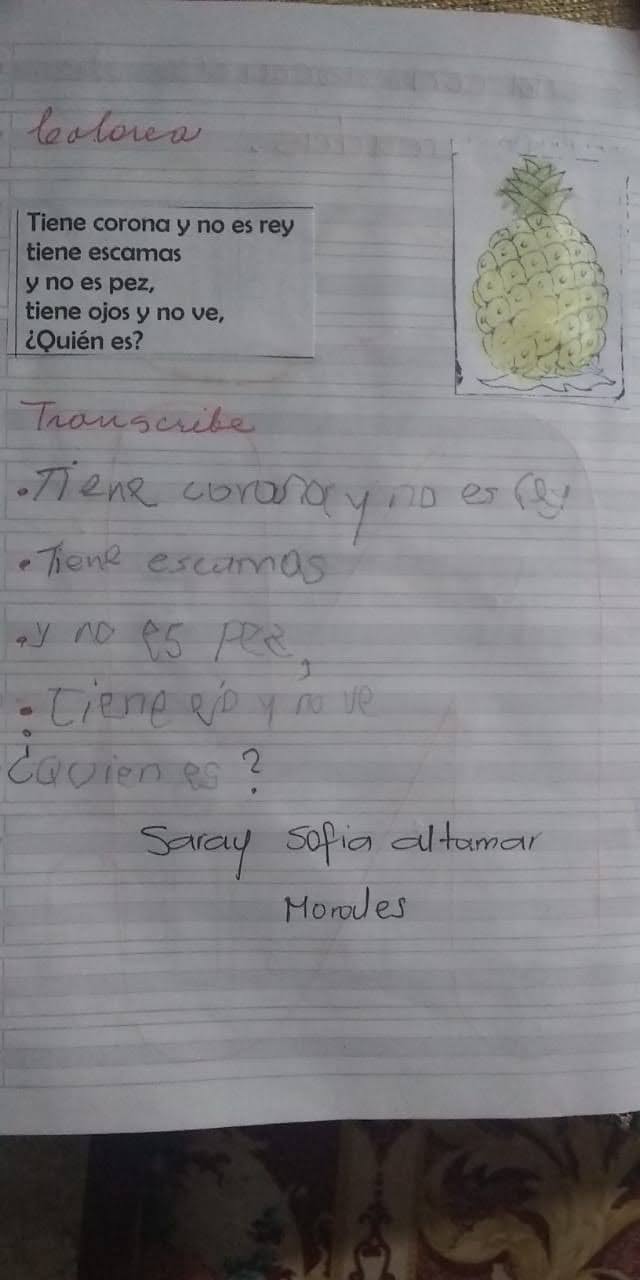 Colorea
Tiene corona y no es rey
tiene escamas
y no es pez,
tiene ojos y no ve,
¿Quién es?
Transcribe
.Tiene corona y no es rey
.Tiene escamas
.y no es pez,
.tiene ojo y no ve
¿Quien es?
Saray Sofia altamar
Morales